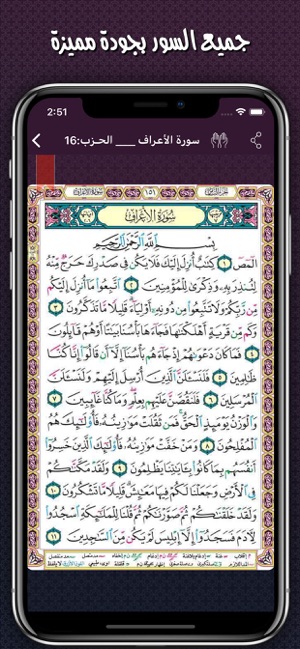 جميع السور بجودة مميزة
2:51
سورة الأعراف ___ الحزب:16
سُورَةُ الأَعْرَافِ
١٥١
سُورَةُ الأَعْرَافِ
بِسْمِ ٱللَّهِ ٱلرَّحْمَٰنِ ٱلرَّحِيمِ
الٓمٓصٓ ١ كِتَٰبٌ أُنزِلَ إِلَيْكَ فَلَا يَكُن فِى صَدْرِكَ حَرَجٌ مِّنْهُ
لِتُنذِرَ بِهِۦ وَذِكْرَىٰ لِلْمُؤْمِنِينَ ٢ ٱتَّبِعُوا۟ مَآ أُنزِلَ إِلَيْكُم
مِّن رَّبِّكُمْ وَلَا تَتَّبِعُوا۟ مِن دُونِهِۦٓ أَوْلِيَآءَ ۗ قَلِيلًا مَّا تَذَكَّرُونَ ٣
وَكَم مِّن قَرْيَةٍ أَهْلَكْنَٰهَا فَجَآءَهَا بَأْسُنَا بَيَٰتًا أَوْ هُمْ قَآئِلُونَ
٤ فَمَا كَانَ دَعْوَىٰهُمْ إِذْ جَآءَهُم بَأْسُنَآ إِلَّآ أَن قَالُوٓا۟ إِنَّا كُنَّا
ظَٰلِمِينَ ٥ فَلَنَسْـَٔلَنَّ ٱلَّذِينَ أُرْسِلَ إِلَيْهِمْ وَلَنَسْـَٔلَنَّ
ٱلْمُرْسَلِينَ ٦ فَلَنَقُصَّنَّ عَلَيْهِم بِعِلْمٍ ۖ وَمَا كُنَّا غَآئِبِينَ ٧
وَٱلْوَزْنُ يَوْمَئِذٍ ٱلْحَقُّ ۚ فَمَن ثَقُلَتْ مَوَٰزِينُهُۥ فَأُو۟لَٰٓئِكَ هُمُ
ٱلْمُفْلِحُونَ ٨ وَمَنْ خَفَّتْ مَوَٰزِينُهُۥ فَأُو۟لَٰٓئِكَ ٱلَّذِينَ خَسِرُوٓا۟
أَنفُسَهُم بِمَا كَانُوا۟ بِـَٔايَٰتِنَا يَظْلِمُونَ ٩ وَلَقَدْ مَكَّنَّٰكُمْ
فِى ٱلْأَرْضِ وَجَعَلْنَا لَكُمْ فِيهَا مَعَٰيِشَ ۗ قَلِيلًا مَّا تَشْكُرُونَ ١٠
وَلَقَدْ خَلَقْنَٰكُمْ ثُمَّ صَوَّرْنَٰكُمْ ثُمَّ قُلْنَا لِلْمَلَٰٓئِكَةِ ٱسْجُدُوا۟
لِءَادَمَ فَسَجَدُوٓا۟ إِلَّآ إِبْلِيسَ لَمْ يَكُن مِّنَ ٱلسَّٰجِدِينَ ١١